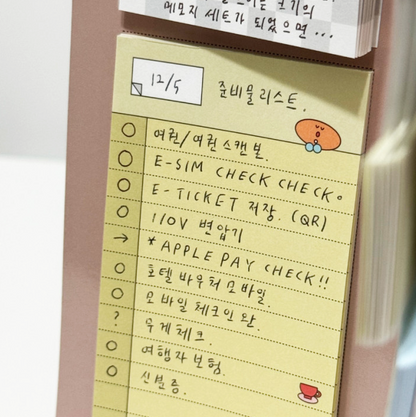 크기의
메모지 세트가 되었으면...
12/5
준비물 리스트.
여권/여권 스캔본.
E-SIM CHECK CHECK。
E-TICKET 저장. (QR)
110V 변압기
→ * APPLE PAY CHECK!!
호텔 바우처 모바일.
모바일 체크인 완.
? 무게 체크.
여행자 보험.
신분증.